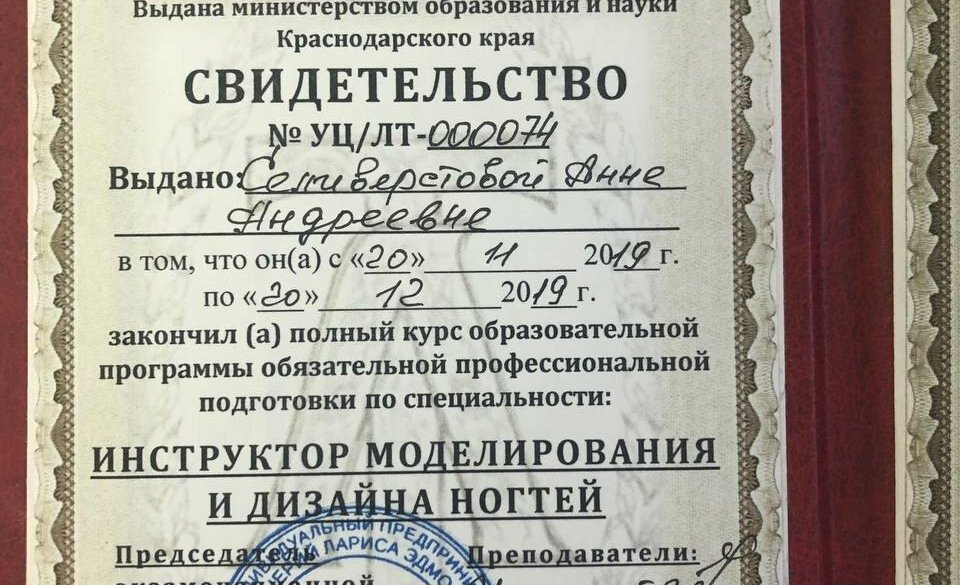 Выдана министерством образования и науки
Краснодарского края
СВИДЕТЕЛЬСТВО
№ УЦ/ЛТ-000074
Выдано: Селиверстовой Анне
Андреевне
в том, что он(а) с «20» 11 2019 г.
по «20» 12 2019 г.
закончил (а) полный курс образовательной
программы обязательной профессиональной
подготовки по специальности:
ИНСТРУКТОР МОДЕЛИРОВАНИЯ
И ДИЗАЙНА НОГТЕЙ
Председатель Преподаватели:
экзаменационной
ЛАРИСА